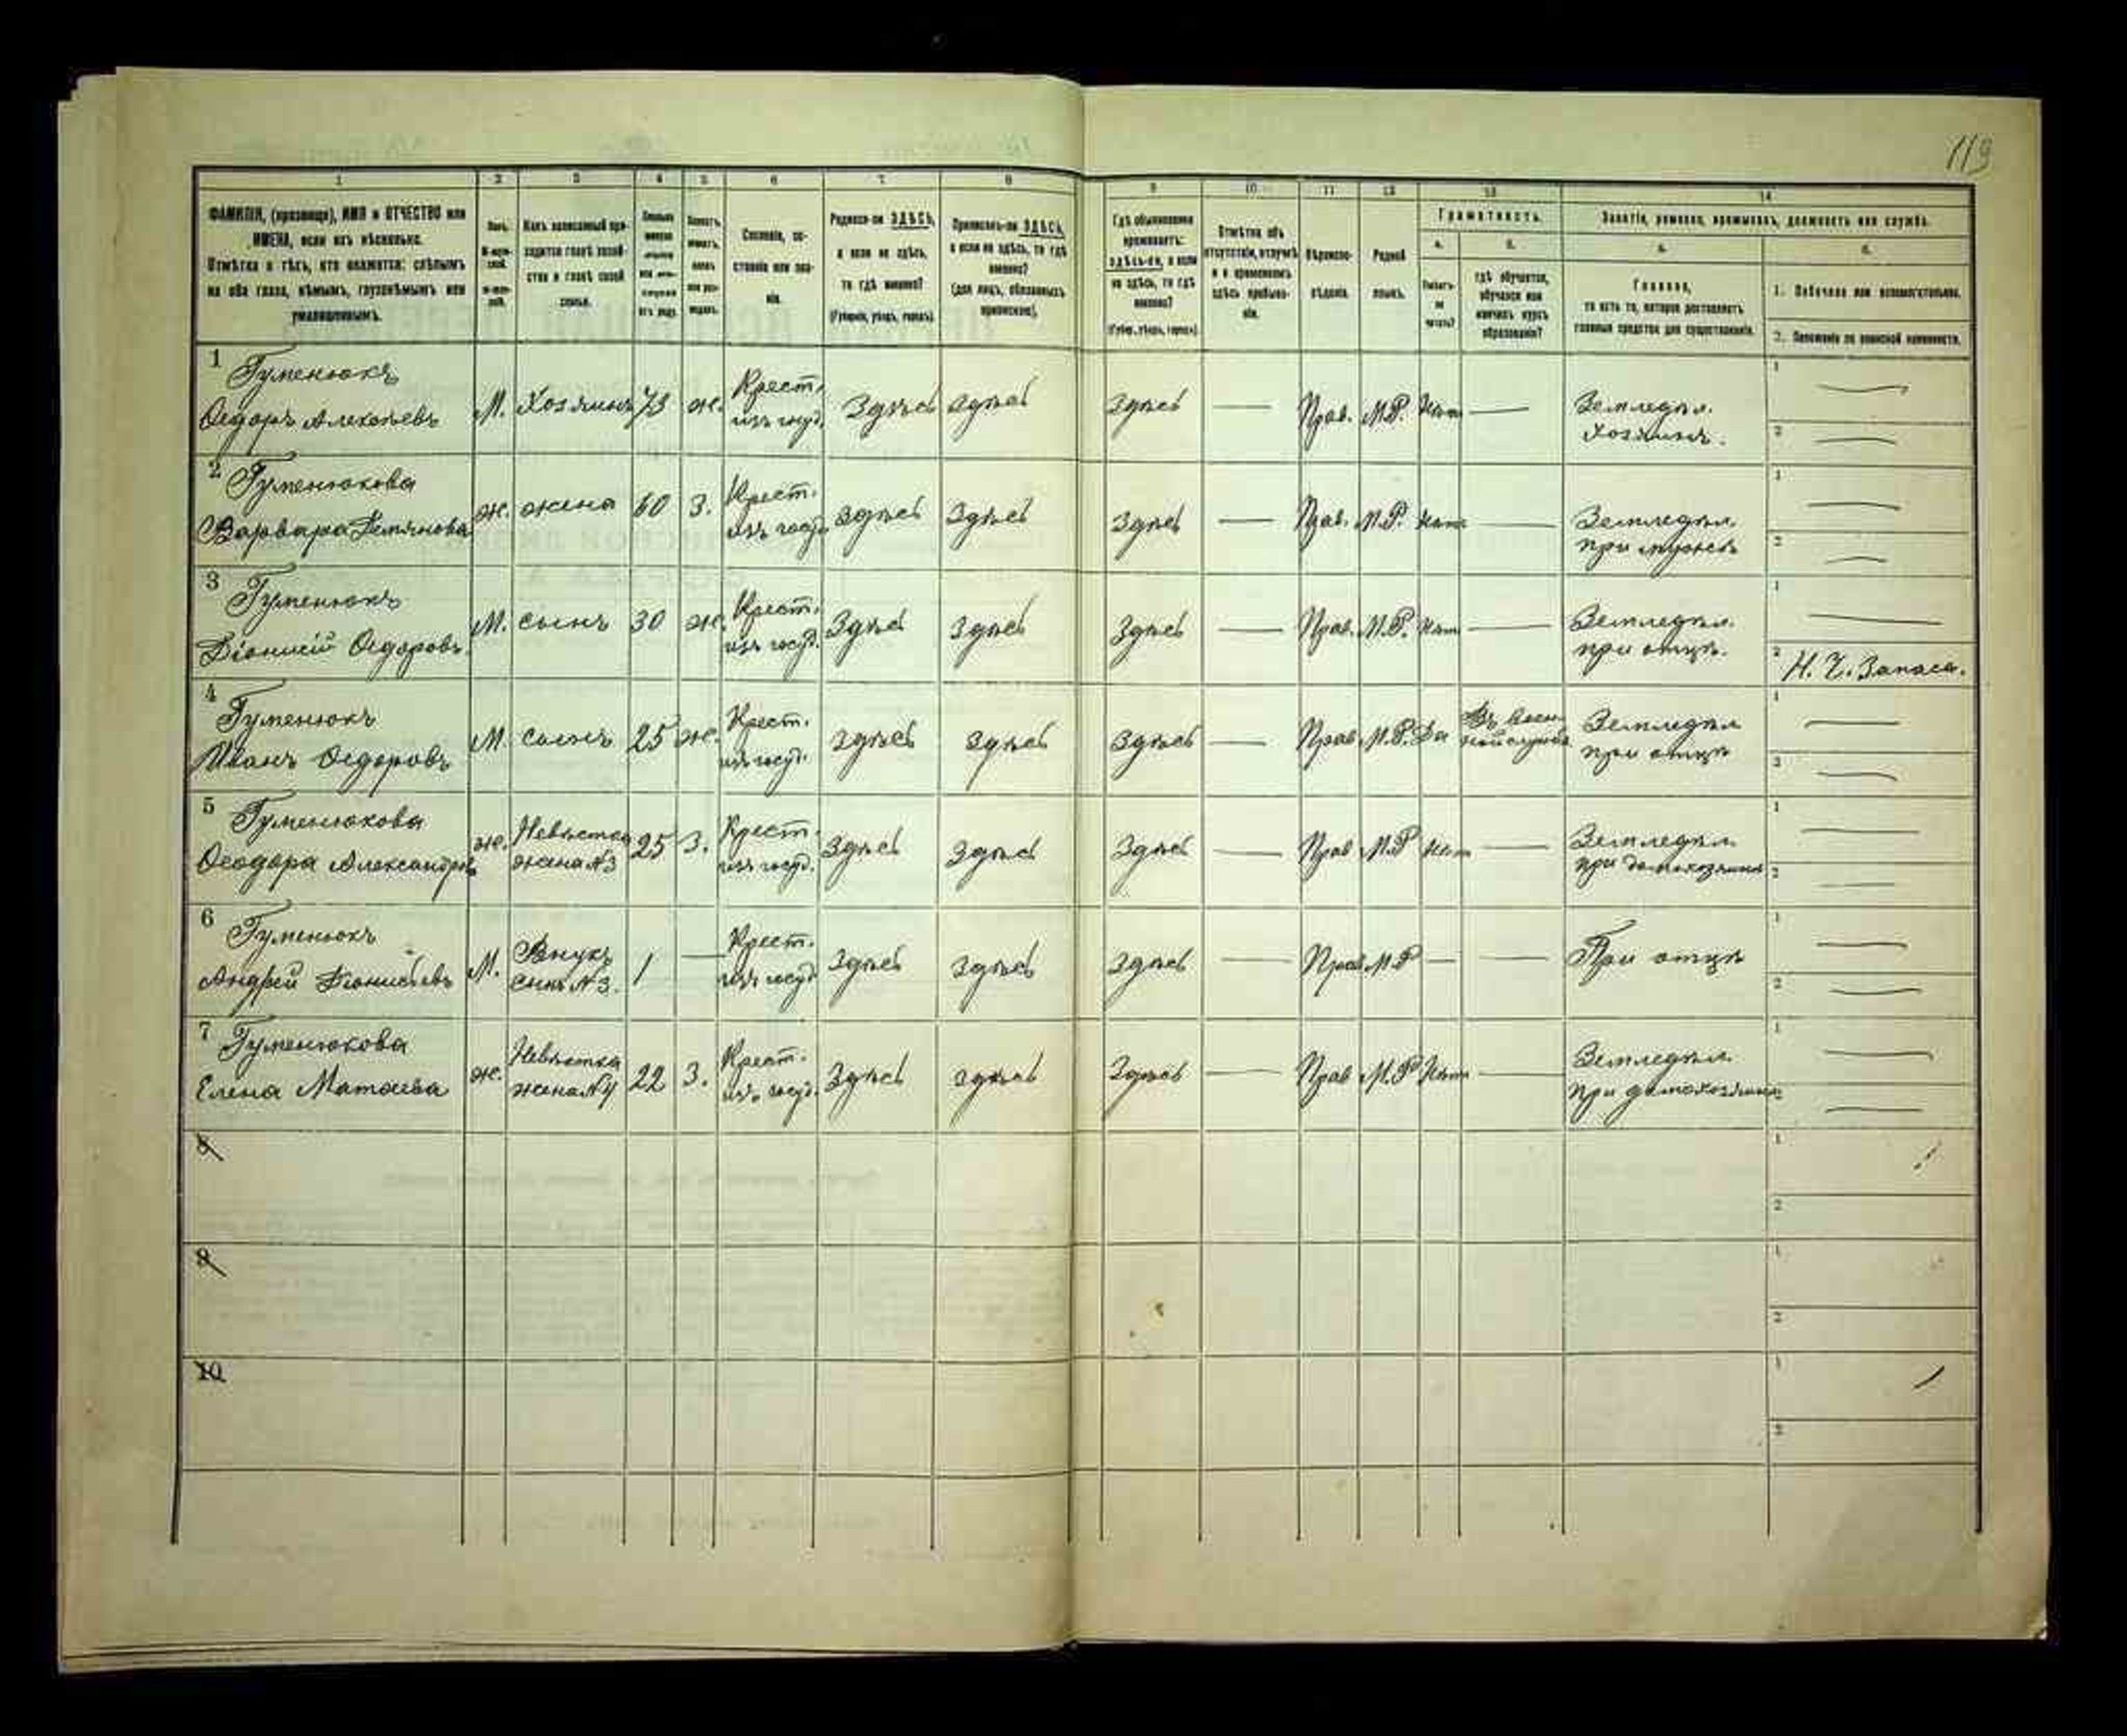 119
1 2 3 4 5 6 7 8 9 10 11 12 13 14
ФАМИЛІЯ, (прозвище), ИМЯ и ОТЧЕСТВО или
ИМЕНА, если ихъ нѣсколько.
Отмѣтка о тѣхъ, кто окажется: слѣпымъ
на оба глаза, нѣмымъ, глухонѣмымъ или
умалишеннымъ.
Полъ.
Какъ записанный при-
ходится главѣ хозяй-
ства и главѣ своей
семьи.
Сословіе, со-
стояніе или зва-
ніе.
Родился-ли ЗДѢСЬ,
а если не здѣсь,
то гдѣ именно?
(Губернія, уѣздъ, городъ).
Приписанъ-ли ЗДѢСЬ,
а если не здѣсь, то гдѣ
именно?
(для лицъ, обязанныхъ
припискою).
Гдѣ обыкновенно
проживаетъ:
здѣсь-ли, а если
не здѣсь, то гдѣ
именно?
(Губер., уѣздъ, городъ).
Отмѣтка объ
отсутствіи, отлучкѣ
и о временномъ
здѣсь пребыва-
ніи.
Вѣроиспо-
вѣданіе.
Родной
языкъ.
Грамотность.
а. б.
Умѣетъ-
ли
читать?
гдѣ обучается,
обучался или
кончилъ курсъ
образованія?
Занятіе, ремесло, промыселъ, должность или служба.
а. б.
Главное,
то есть то, которое доставляетъ
главныя средства для существованія.
1. Побочное или вспомогательное.
2. Положеніе по воинской повинности.
1 Гуменюкъ
Ѳедоръ Алексѣевъ М. Хозяинъ 73 ж. Крест. изъ госуд. Здѣсь Здѣсь Здѣсь — Прав. М.Р. Нѣтъ — Земледѣл. Хозяинъ.
2 Гуменюкова
Варвара Демянова ж. жена 60 З. Крест. изъ госуд. Здѣсь Здѣсь Здѣсь — Прав. М.Р. Нѣтъ — Земледѣл. при мужѣ
3 Гуменюкъ
Діонисій Ѳедоровъ М. сынъ 30 ж. Крест. изъ госуд. Здѣсь Здѣсь Здѣсь — Прав. М.Р. Нѣтъ — Земледѣл. при отцѣ. Н. Ч. Запаса.
4 Гуменюкъ
Иванъ Ѳедоровъ М. сынъ 25 ж. Крест. изъ госуд. Здѣсь Здѣсь Здѣсь — Прав. М.Р. Да Въ воен- ной службѣ Земледѣл. при отцѣ
5 Гуменюкова
Ѳеодора Александров. ж. Невѣстка жена №3 25 З. Крест. изъ госуд. Здѣсь Здѣсь Здѣсь — Прав М.Р Нѣтъ — Земледѣл. при домохозяинѣ
6 Гуменюкъ
Андрей Діонисіевъ М. Внукъ сынъ №3. 1 — Крест. изъ госуд. Здѣсь Здѣсь Здѣсь — Прав М.Р — — При отцѣ
7 Гуменюкова
Елена Матѳеева ж. Невѣстка жена №4 22 З. Крест. изъ госуд. Здѣсь Здѣсь Здѣсь — Прав М.Р Нѣтъ — Земледѣл. при домохозяинѣ
8
9
10